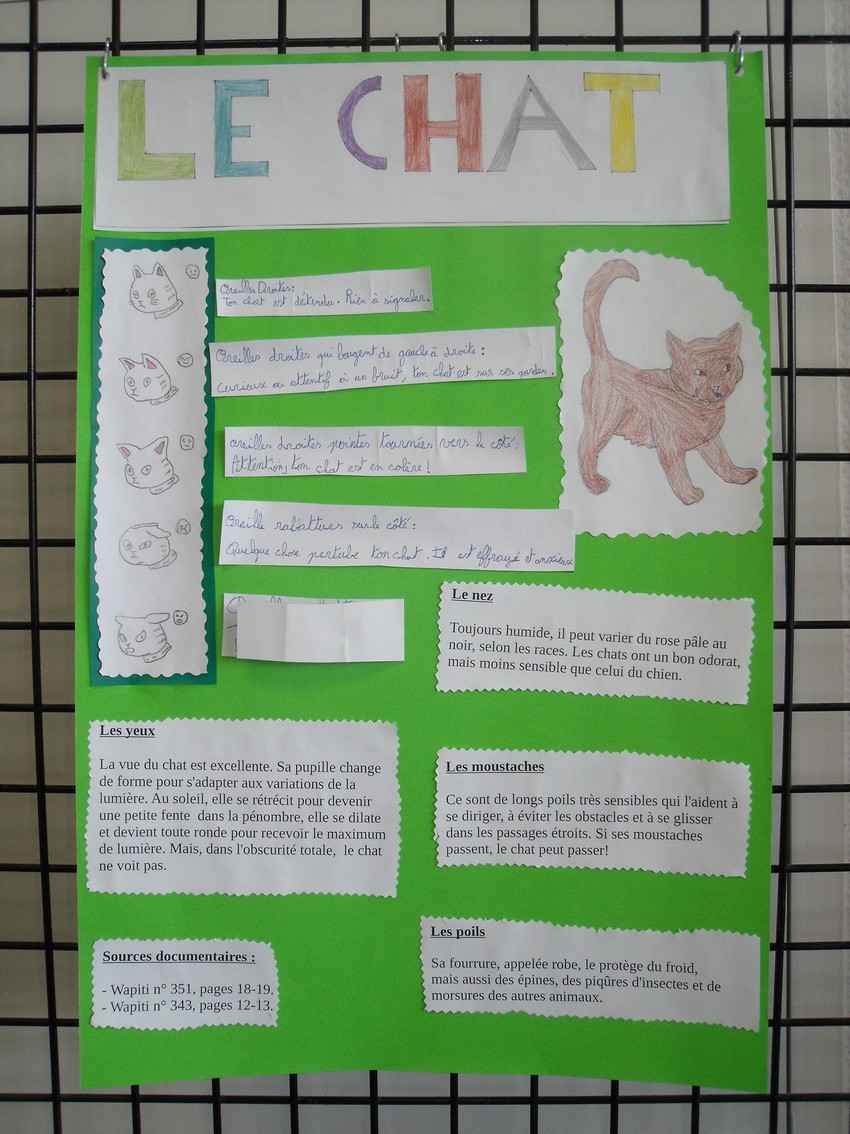 LE CHAT
Oreilles Droites:
Ton chat est détendu. Rien à signaler.
Oreilles droites qui bougent de gauche à droite :
Curieux ou attentif à un bruit, ton chat est sur ses gardes.
oreilles droites pointes tournées vers le côté:
Attention, ton chat est en colère !
Oreille rabattues sur le côté :
Quelque chose pertube ton chat. Il est effrayé et anxieux
Le nez
Toujours humide, il peut varier du rose pâle au
noir, selon les races. Les chats ont un bon odorat,
mais moins sensible que celui du chien.
Les yeux
La vue du chat est excellente. Sa pupille change
de forme pour s'adapter aux variations de la
lumière. Au soleil, elle se rétrécit pour devenir
une petite fente dans la pénombre, elle se dilate
et devient toute ronde pour recevoir le maximum
de lumière. Mais, dans l'obscurité totale, le chat
ne voit pas.
Les moustaches
Ce sont de longs poils très sensibles qui l'aident à
se diriger, à éviter les obstacles et à se glisser
dans les passages étroits. Si ses moustaches
passent, le chat peut passer!
Les poils
Sa fourrure, appelée robe, le protège du froid,
mais aussi des épines, des piqûres d'insectes et de
morsures des autres animaux.
Sources documentaires :
- Wapiti n° 351, pages 18-19.
- Wapiti n° 343, pages 12-13.